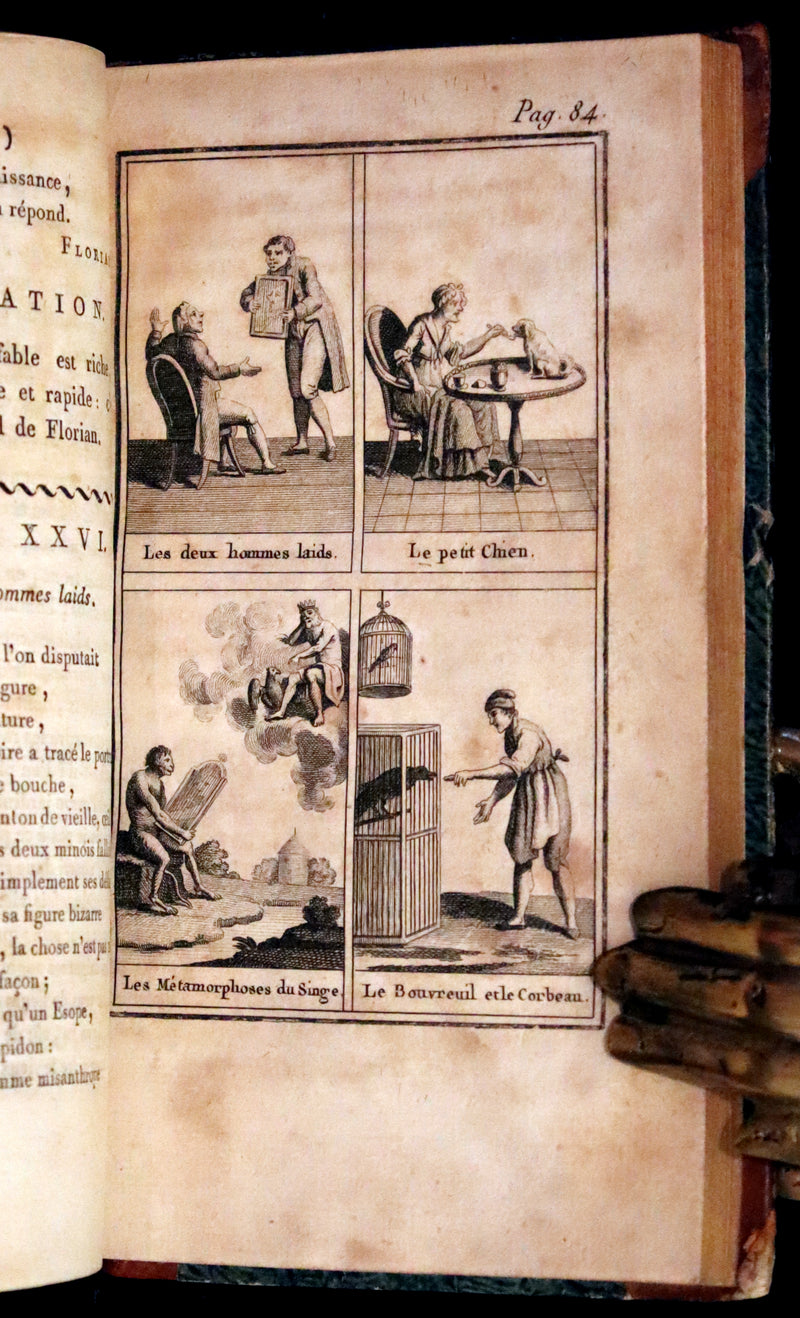 )
issance,
répond.
FLORIA
ATION.
fable est riche
e et rapide:
l de Florian.
XXVI.
ommes laids.
l'on disputait
gure,
ture,
ire a tracé le
e bouche,
nton de vieille,
s deux minois
implement ses
sa figure bizarre
, la chose n'est pas
façon;
qu'un Esope,
pidon:
mme misanthrope
Pag. 84.
Les deux hommes laids.
Le petit Chien.
Les Métamorphoses du Singe.
Le Bouvreuil et le Corbeau.